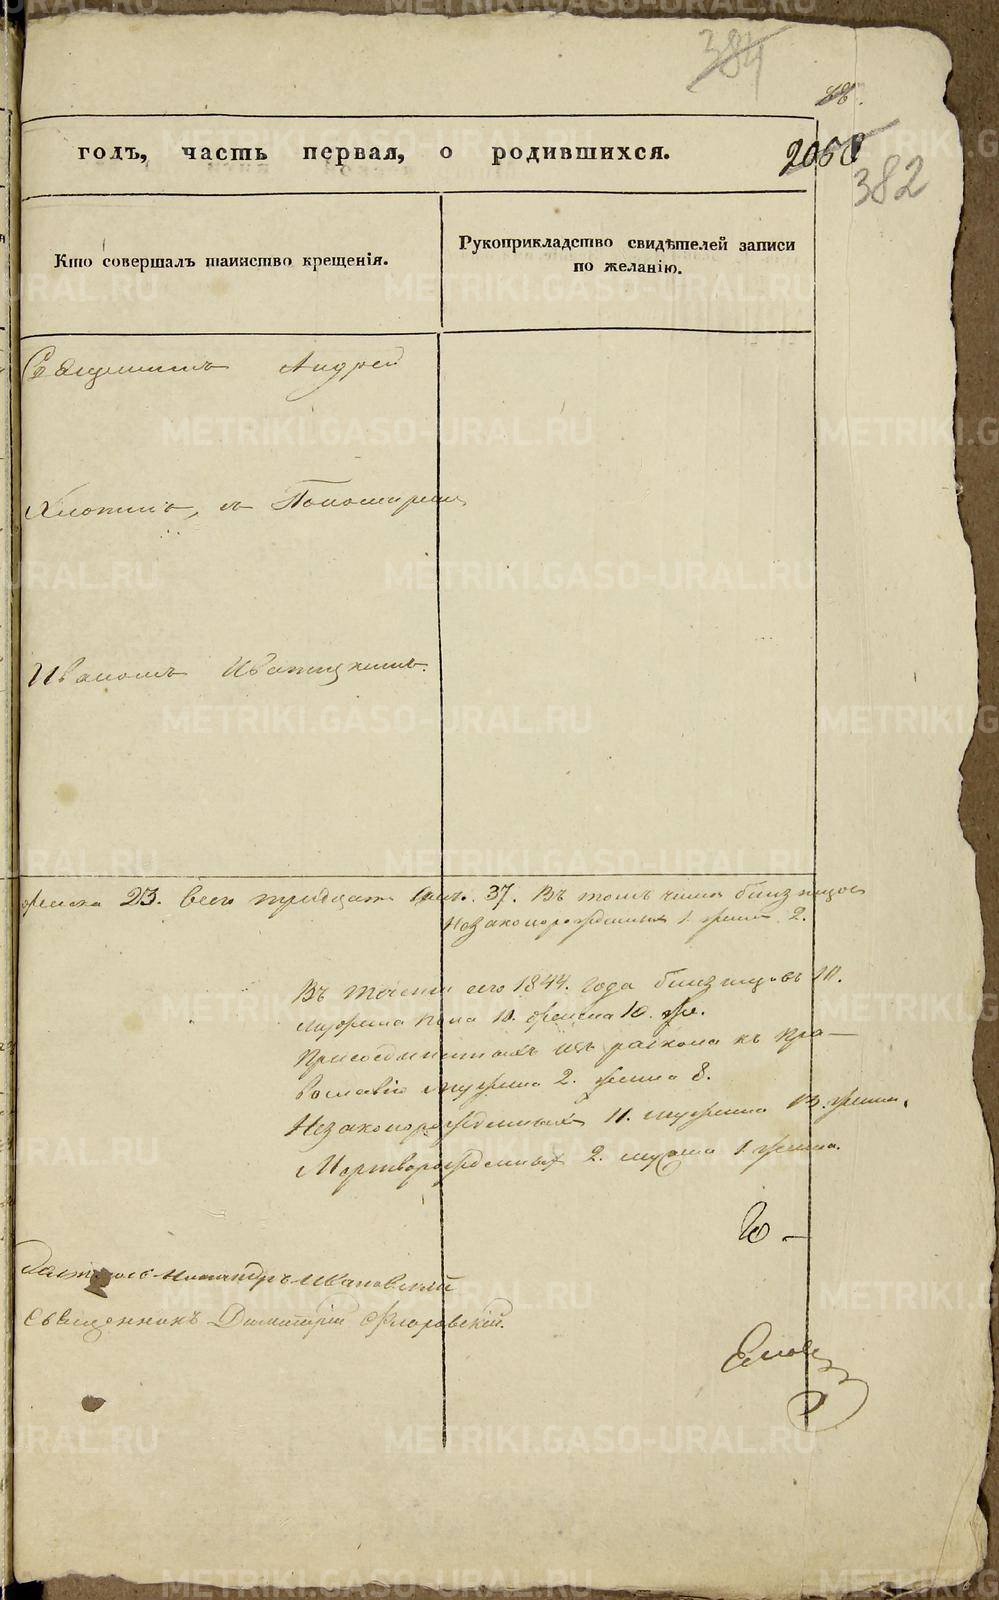 384
88.
годъ, часть первая, о родившихся.
2050
382
Кто совершалъ таинство крещенія.
Рукоприкладство свидѣтелей записи
по желанію.
Священникъ Андрей
съ Пономаремъ
Иваномъ
женска 23. всего тридцать семь. 37. Въ томъ числѣ близнецовъ
Незаконорожденныхъ 1. женск. 2.
Въ теченіи сего 1844. года близнецовъ 10.
мужеска пола 10. женска 10. же.
Присоединенныхъ изъ раскола къ пра-
вославію мужеска 2. женска 8.
Незаконорожденныхъ 11. мужеска 13. женска.
Мертворожденныхъ 2. мужеска 1. женска.
Ивановскій
Священникъ Димитрій Флоровскій.
METRIKI.GASO-URAL.RU